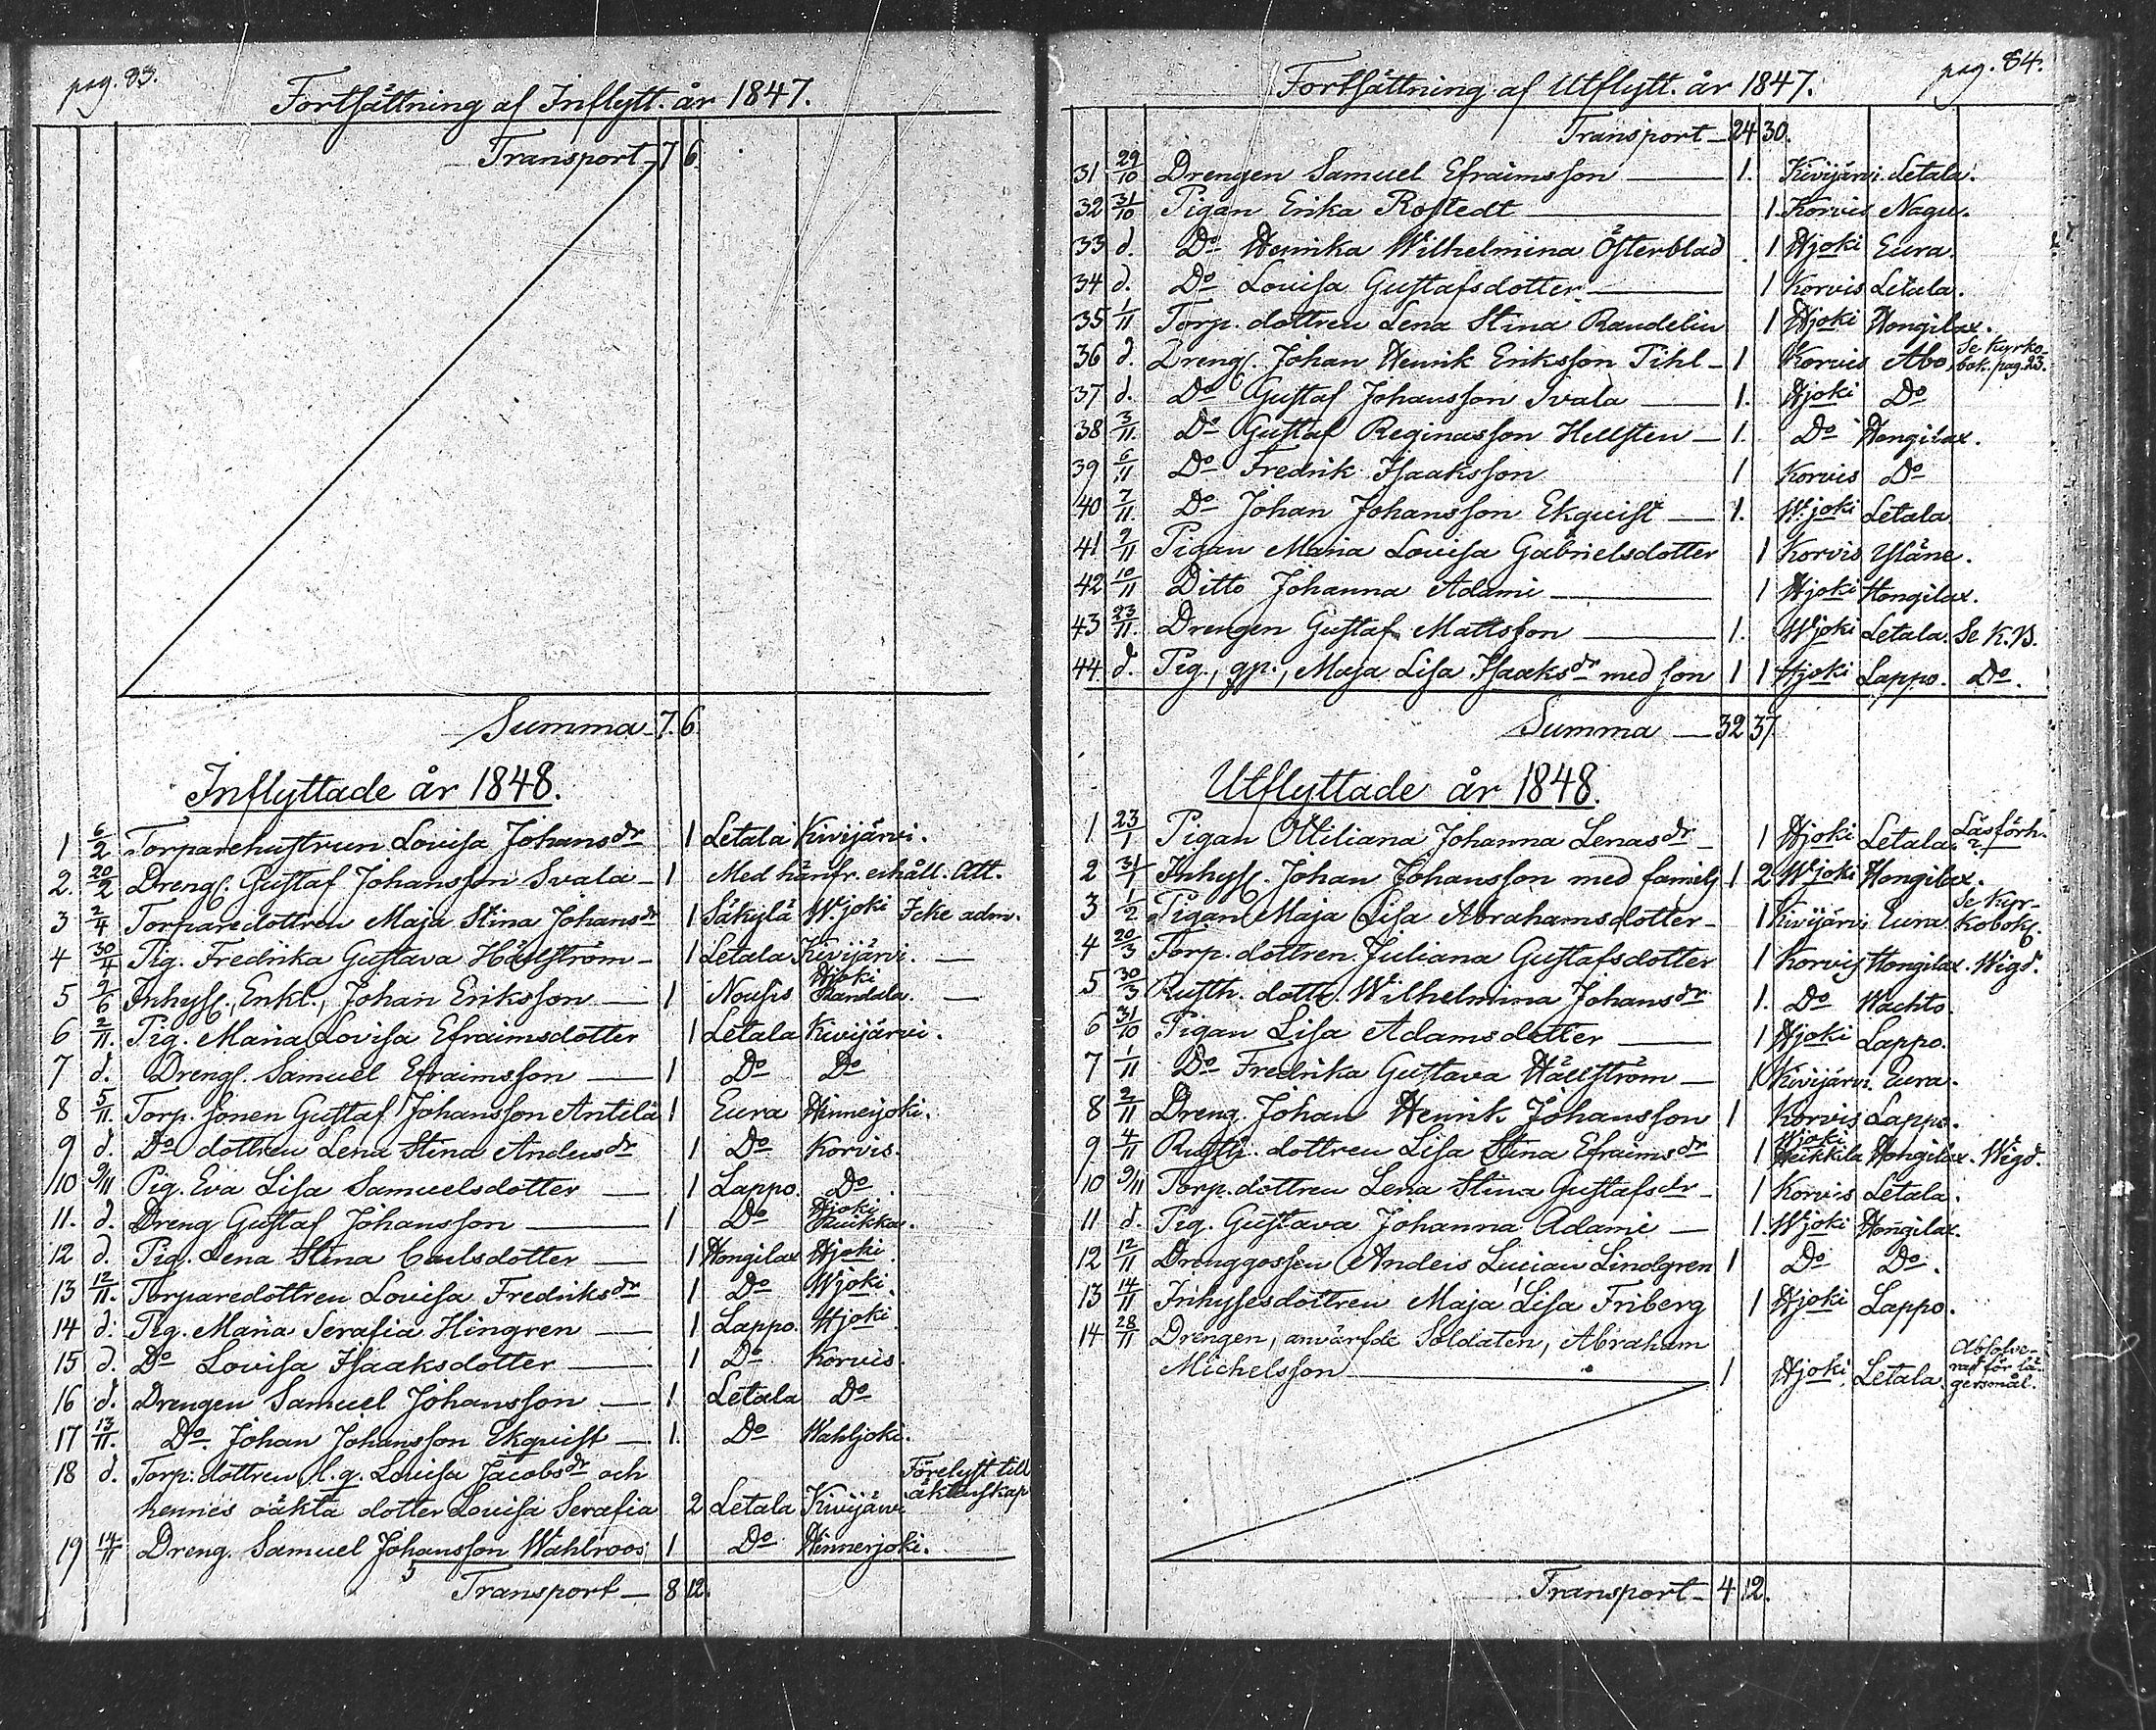 pag. 83.
Fortsättning af Inflytt. år 1847.
Transport 7 6
Summa 7. 6.
Inflyttade år 1848.
1 6/2 Torparehustrun Lovisa Johansdr 1 Letala Kivijärvi.
2. 20/2 Drengs. Gustaf Johansson Svala 1 Med hänfr. eihåll. Att.
3 2/4 Torparedottren Maja Stina Johansdr 1 Säkylä W.joki Icke adm.
4 30/4 Pig. Fredrika Gustava Hällström 1 Letala Kivijärvi. —
5 2/6 Inhyss., Enkl., Johan Eriksson 1 Nousis Hjoki Pandala. —
6 2/11. Pig. Maria Lovisa Efraimsdotter 1 Letala Kivijärvi.
7 d. Drengs. Samuel Efraimsson 1 Do Do
8 5/11. Torp. sonen Gustaf Johansson Antila 1 Eura Hinnerjoki.
9 d. Do dottren Lena Stina Andersdr 1 Do Korvis.
10 9/11 Pig. Eva Lisa Samuelsdotter 1 Lappo. Do
11. d. Dreng Gustaf Johansson 1 Do Hjoki
12 d. Pig. Lena Stina Carlsdotter 1 Hongilax Hjoki.
13 12/11. Torparedottren Lovisa Fredriksdr 1 Do Wjoki.
14 d. Pig. Maria Serafia Hingren 1 Lappo. Hjoki
15 d. Do Lovisa Isaaksdotter 1 Do Korvis.
16 d. Drengen Samuel Johansson 1 Letala Do
17 13/11. Do. Johan Johansson Ekquist 1. Do Wahljoki.
18 d. Torp: dottren, h.q. Lovisa Jacobsdr och Förelyst till
hennes oäkta dotter Lovisa Serafia 2 Letala Kivijärvi äktenskap
19 14/11 Dreng. Samuel Johansson Wahlroos 1 Do Hinnerjoki.
Transport 8 12.
pag. 84.
Fortsättning af Utflytt. år 1847.
Transport 24 30.
31 29/10 Drengen Samuel Efraimsson 1. Kivijärvi Letala.
32 31/10 Pigan Erika Rostedt 1. Korvis Nagu.
33 d. Do Henrika Wilhelmina Österblad 1 Hjoki Eura.
34 d. Do Lovisa Gustafsdotter 1 Korvis Letala.
35 1/11 Torp. dottren Lena Stina Randelin 1 Hjoki Hongilax.
36 d. Drengs. Johan Henrik Eriksson Pihl 1 Korvis Abo, Se Kyrko-
bok. pag. 23.
37 d. Do Gustaf Johansson Svala 1. Hjoki Do
38 3/11. Do Gustaf Reginasson Hellsten 1. Do Hongilax.
39 6/11 Do Fredrik Isaaksson 1 Korvis Do
40 7/11. Do Johan Johansson Ekquist 1. W.joki Letala.
41 9/11 Pigan Maria Lovisa Gabrielsdotter 1 Korvis Yläne.
42 10/11 Ditto Johanna Adami 1 Hjoki Hongilax.
43 23/11. Drengen Gustaf Mattsson 1. Wjoki Letala. Se K.B.
44. d. Pig., gp., Maja Lisa Isaaksdr med son 1 1 Hjoki Lappo. Do.
Summa 32 37
Utflyttade år 1848.
1 23/1 Pigan Ottiliana Johanna Lenasdr 1 Hjoki Letala. Läsförh. ?
2 31/1 Inhyss. Johan Johansson med familj 1 2 Wjoki Hongilax.
3 1/2 Pigan Maja Lisa Abrahamsdotter 1 Kivijärvi Eura. Se Kyr-
koboks.
4 20/3 Torp. dottren Juliana Gustafsdotter 1 Korvis Hongilax. Wigd.
5 30/3 Rusth. dottr. Wilhelmina Johansdr 1. Do Wachto.
6 31/10 Pigan Lisa Adamsdotter 1 Hjoki Lappo.
7 1/11 Do Fredrika Gustava Hällström 1 Kivijärvi Eura.
8 2/11 Dreng. Johan Henrik Johansson 1 Korvis Lappo.
9 4/11 Rusth. dottren Lisa Stina Efraimsdr 1 Hjoki Heikkila Hongilax. Wigd.
10 9/11 Torp. dottren Lena Stina Gustafsdr 1 Korvis Letala.
11 d. Pig. Gustava Johanna Adami 1. Wjoki Hongilax.
12 12/11 Drenggossen Anders Lucian Lindgren 1 Do Do.
13 14/11 Inhysesdottren Maja Lisa Friberg 1 Hjoki Lappo.
14 28/11 Drengen, anvärfde Soldaten, Abraham
Michelsson 1 Hjoki Letala. Absolve-
rad för lä-
gersmål.
Transport 4 12.